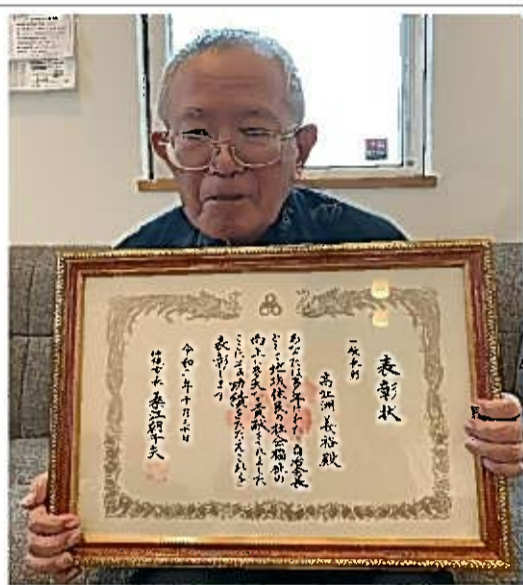 表彰状
高江洲義裕殿
あなたは多年にわたり自治会長
として地域住民の社会福祉の
向上に多大な貢献をされました
ここにその功績をたたえこれを
表彰します
令和二年十月三十日